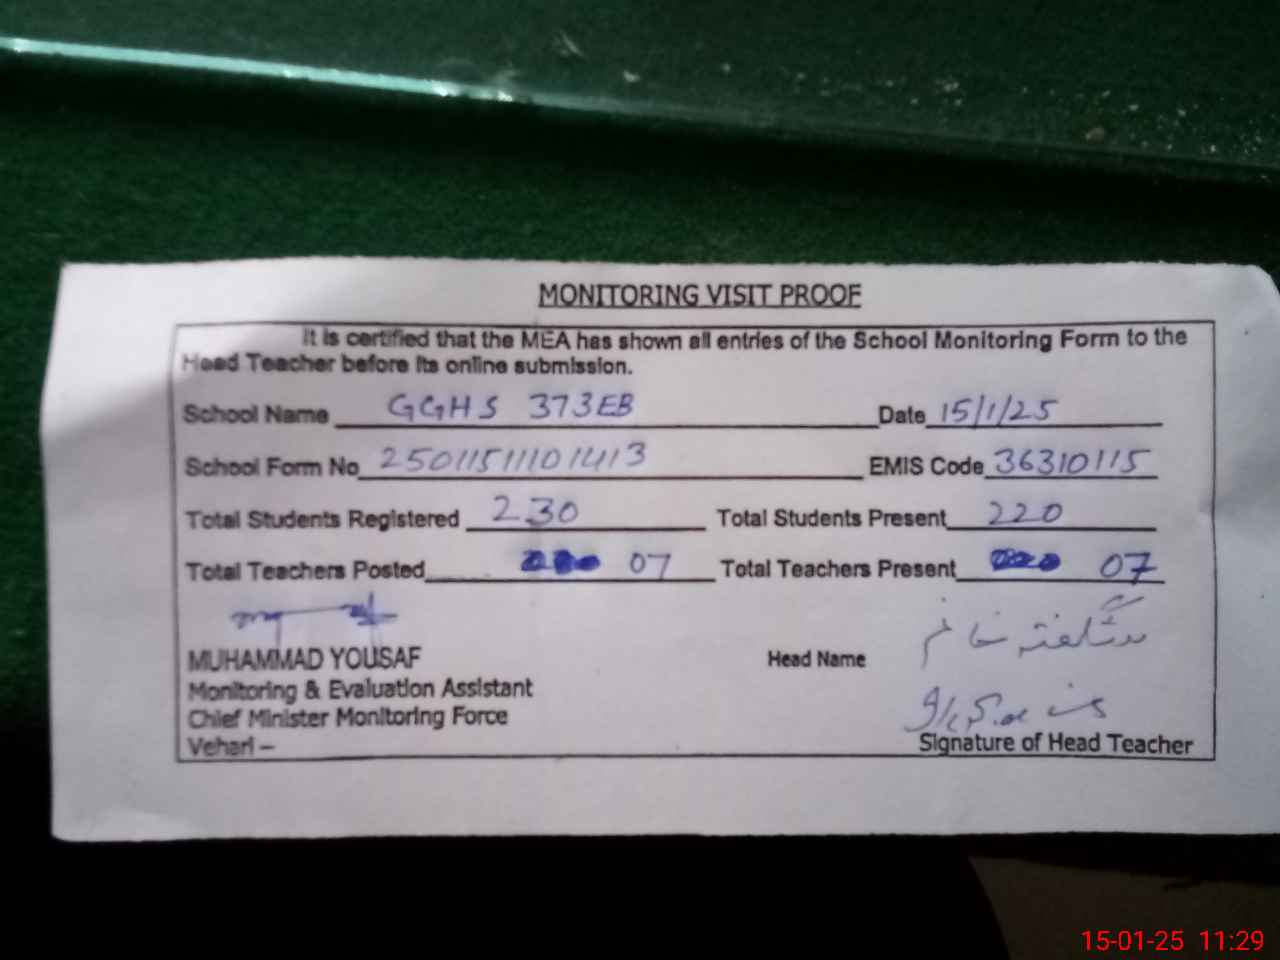 MONITORING VISIT PROOF
It is certified that the MEA has shown all entries of the School Monitoring Form to the
Head Teacher before its online submission.
School Name GGHS 373EB Date 15/1/25
School Form No 25011511101413 EMIS Code 36310115
Total Students Registered 230 Total Students Present 220
Total Teachers Posted 07 Total Teachers Present 07
MUHAMMAD YOUSAF Head Name شگفتہ خانم
Monitoring & Evaluation Assistant
Chief Minister Monitoring Force
Vehari – Signature of Head Teacher
15-01-25 11:29